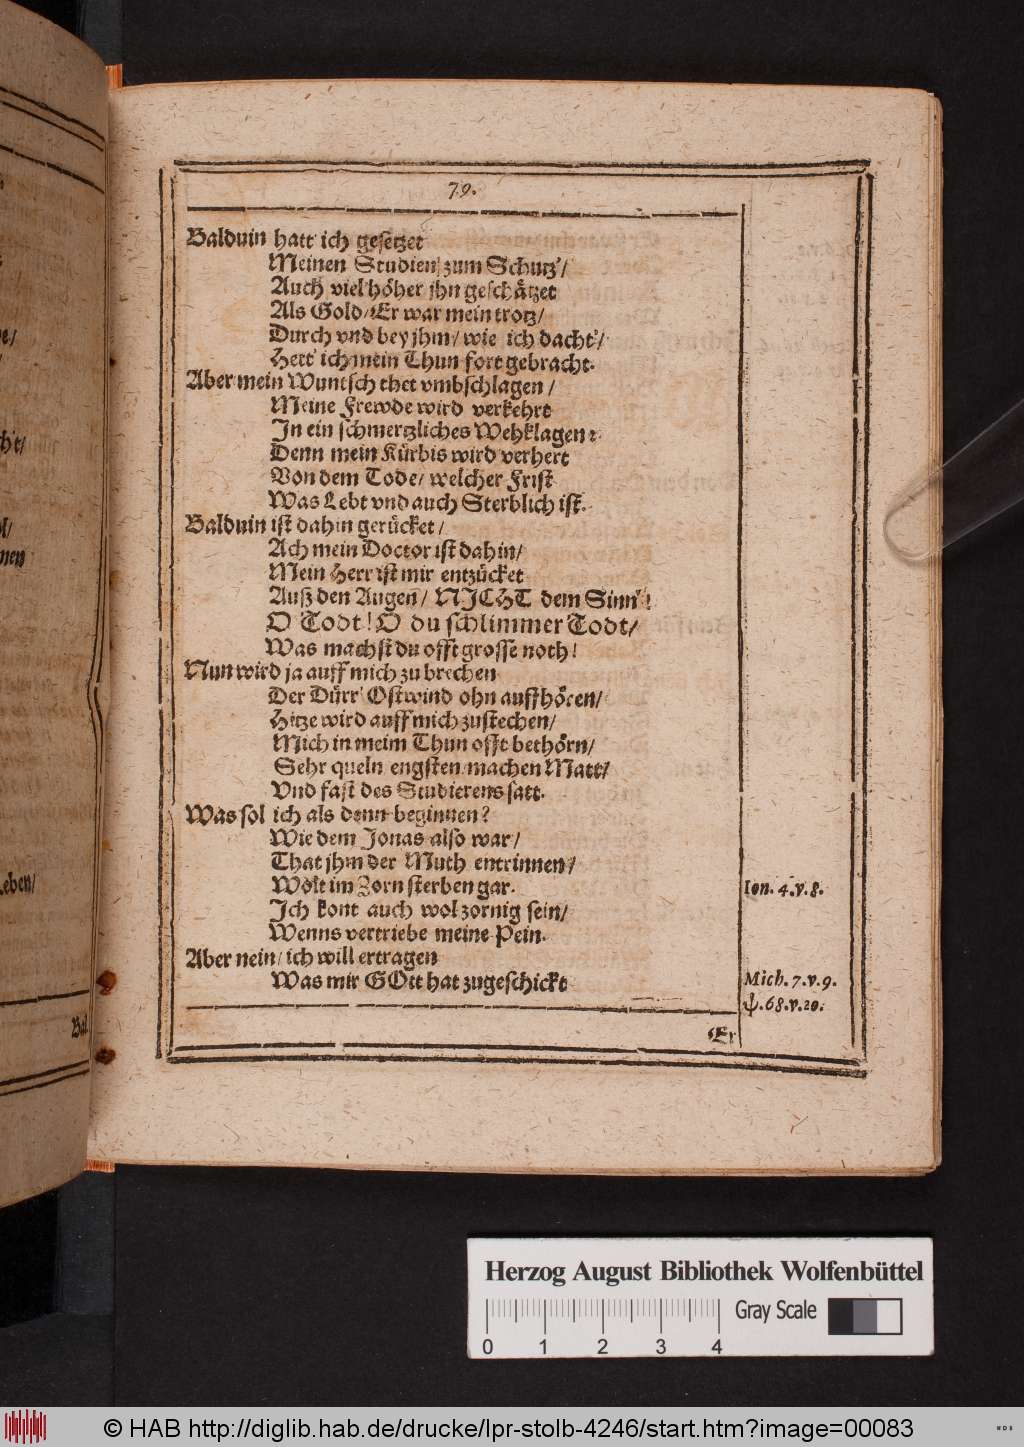 79.
Balduin hatt' ich gesetzet
Meinen Studien zum Schutz'/
Auch viel höher jhn geschätzet
Als Gold/ Er war mein trotz/
Durch vnd bey jhm/ wie ich dacht'/
Hett' ich mein Thun fort gebracht.
Aber mein Wuntsch thet vmbschlagen/
Meine Frewde wird verkehrt
In ein schmertzliches Wehklagen:
Denn mein Kürbis wird verhert
Von dem Tode/ welcher Frist
Was Lebt vnd auch Sterblich ist.
Balduin ist dahin gerücket/
Ach mein Doctor ist dahin/
Mein Herr ist mir entzücket
Auß den Augen/ NJCHT dem Sinn'!
O Todt! O du schlimmer Todt/
Was machst du offt grosse noth!
Nun wird ja auff mich zu brechen
Der Dürr' Ostwind ohn auffhören/
Hitze wird auff mich zustechen/
Mich in meim Thun offt bethörn/
Sehr queln engsten machen Matt/
Vnd fast des Studierens satt.
Was sol ich als denn beginnen?
Wie dem Jonas also war/
That jhm der Muth entrinnen/
Wolt im Zorn sterben gar.
Ion. 4. v. 8.
Ich kont auch wol zornig sein/
Wenns vertriebe meine Pein.
Aber nein/ ich will ertragen
Was mir GOtt hat zugeschickt
Mich. 7. v. 9.
ψ. 68. v. 20.
Er
ben/
Bal
Herzog August Bibliothek Wolfenbüttel
Gray Scale
0 1 2 3 4
© HAB http://diglib.hab.de/drucke/lpr-stolb-4246/start.htm?image=00083